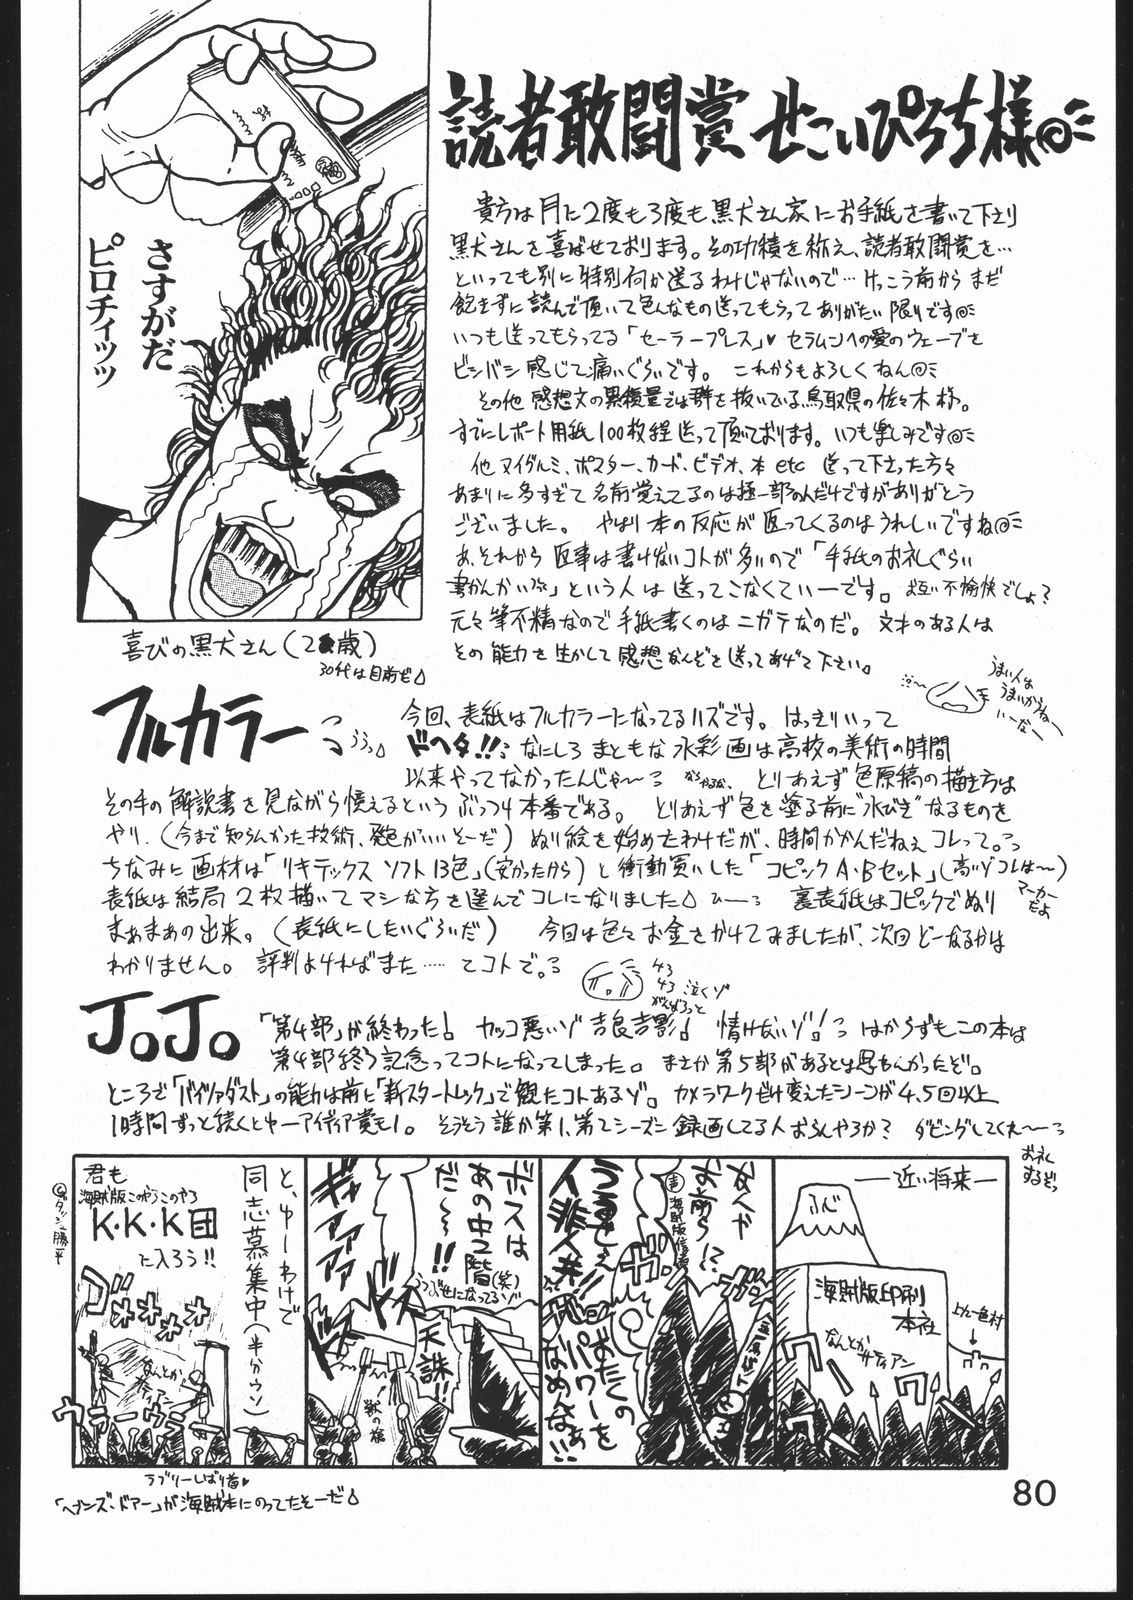 読者敢闘賞 せこいぴろち様
さすがだ
ピロチィッッ
喜びの黒犬さん(2 歳)
30代は目前だ
貴方は月に2度も3度も黒犬さん家にお手紙を書いて下さり
黒犬さんを喜ばせております。その功積を称え、読者敢闘賞を…
といっても別に特別何か送るわけじゃないので…けっこう前からまだ
飽きずに読んで頂いて色んなもの送ってもらってありがたい限りです
いつも送ってもらってる「セーラープレス」♥ セラムンへの愛のウェーブを
ビシバシ感じて痛いぐらいです。 これからもよろしくねん
その他 感想文の累積量では群を抜いている鳥取県の佐々木様。
すでにレポート用紙100枚程送って頂いております。いつも楽しみです
他 ヌイグルミ、ポスター、カード、ビデオ、本 etc 送って下さった方々
あまりに多すぎて名前覚えてるのは極一部のんだけですがありがとう
ございました。 やはり本の反応が返ってくるのはうれしいですね
あ、それから返事は書けないコトが多いので「手紙のお礼ぐらい
書かんかい」という人は送ってこなくていーです。 お互い不愉快でしょ?
元々筆不精なので手紙書くのはニガテなのだ。文才のある人は
その能力を生かして感想なんぞを送ってあげて下さい。
うまい人は
うまいからねー
いーなー
フルカラー
ううっ
今回、表紙はフルカラーになってるハズです。はっきりいって
ドヘタ!!なにしろまともな水彩画は高校の美術の時間
以来やってなかったんじゃ〜 とりあえず色原稿の描き方は
その手の解説書を見ながら憶えるというぶっつけ本番である。 とりあえず色を塗る前に"水びき"なるものを
やり、(今まで知らんかった技術、発色がいいそーだ) ぬり絵を始めたわけだが、時間かかんだねぇコレって。
ちなみに画材は「リキテックス ソフト13色」(安かったから)と衝動買いした「コピック A・Bセット」(高いゾコレは〜)
マーカーだよ
表紙は結局2枚描いてマシな方を選んでコレになりました ひー 裏表紙はコピックでぬり
まぁまぁの出来。(表紙にしたいぐらいだ) 今回は色々お金をかけてみましたが、次回どーなるかは
わかりません。 評判よければまた……てコトで。
泣くゾ
JoJo
「第4部」が終わった! カッコ悪いゾ 吉良吉影! 情けないゾ! はからずもこの本は
がんばろっと
第4部終了記念ってコトになってしまった。 まさか第5部があるとは思わんかったぞ。
ところで「バイツァダスト」の能力は前に「新スタートレック」で観たコトあるゾ。カメラワークだけ変えたシーンが4,5回以上
1時間ずっと続くとゆーアイディア賞もの。 そうそう誰か第1、第2シーズン録画してる人おらんやろか? ダビングしてくれ〜
お礼
するぞっ
—近い将来—
ふじ
海賊版印刷
本社
なんとか
サティアン
上九一色村
なんや
お前ら!?
海賊版信者
うるせぇ
人非人共!!
おたくの
パワーを
なめんなぁ!!
ボスは
あの中2階(笑)
だ〜!!
天誅!!
ギャァァァァ
と、ゆーわけで
同志募集中(半分ウソ)
君も
海賊版このやろこのやろ
K・K・K団
に入ろう!!
なんとか
サティアン
ウラーウラー
ラブリーしばり首♥
「ヘブンズ・ドアー」が海賊本にのってたそーだ
80